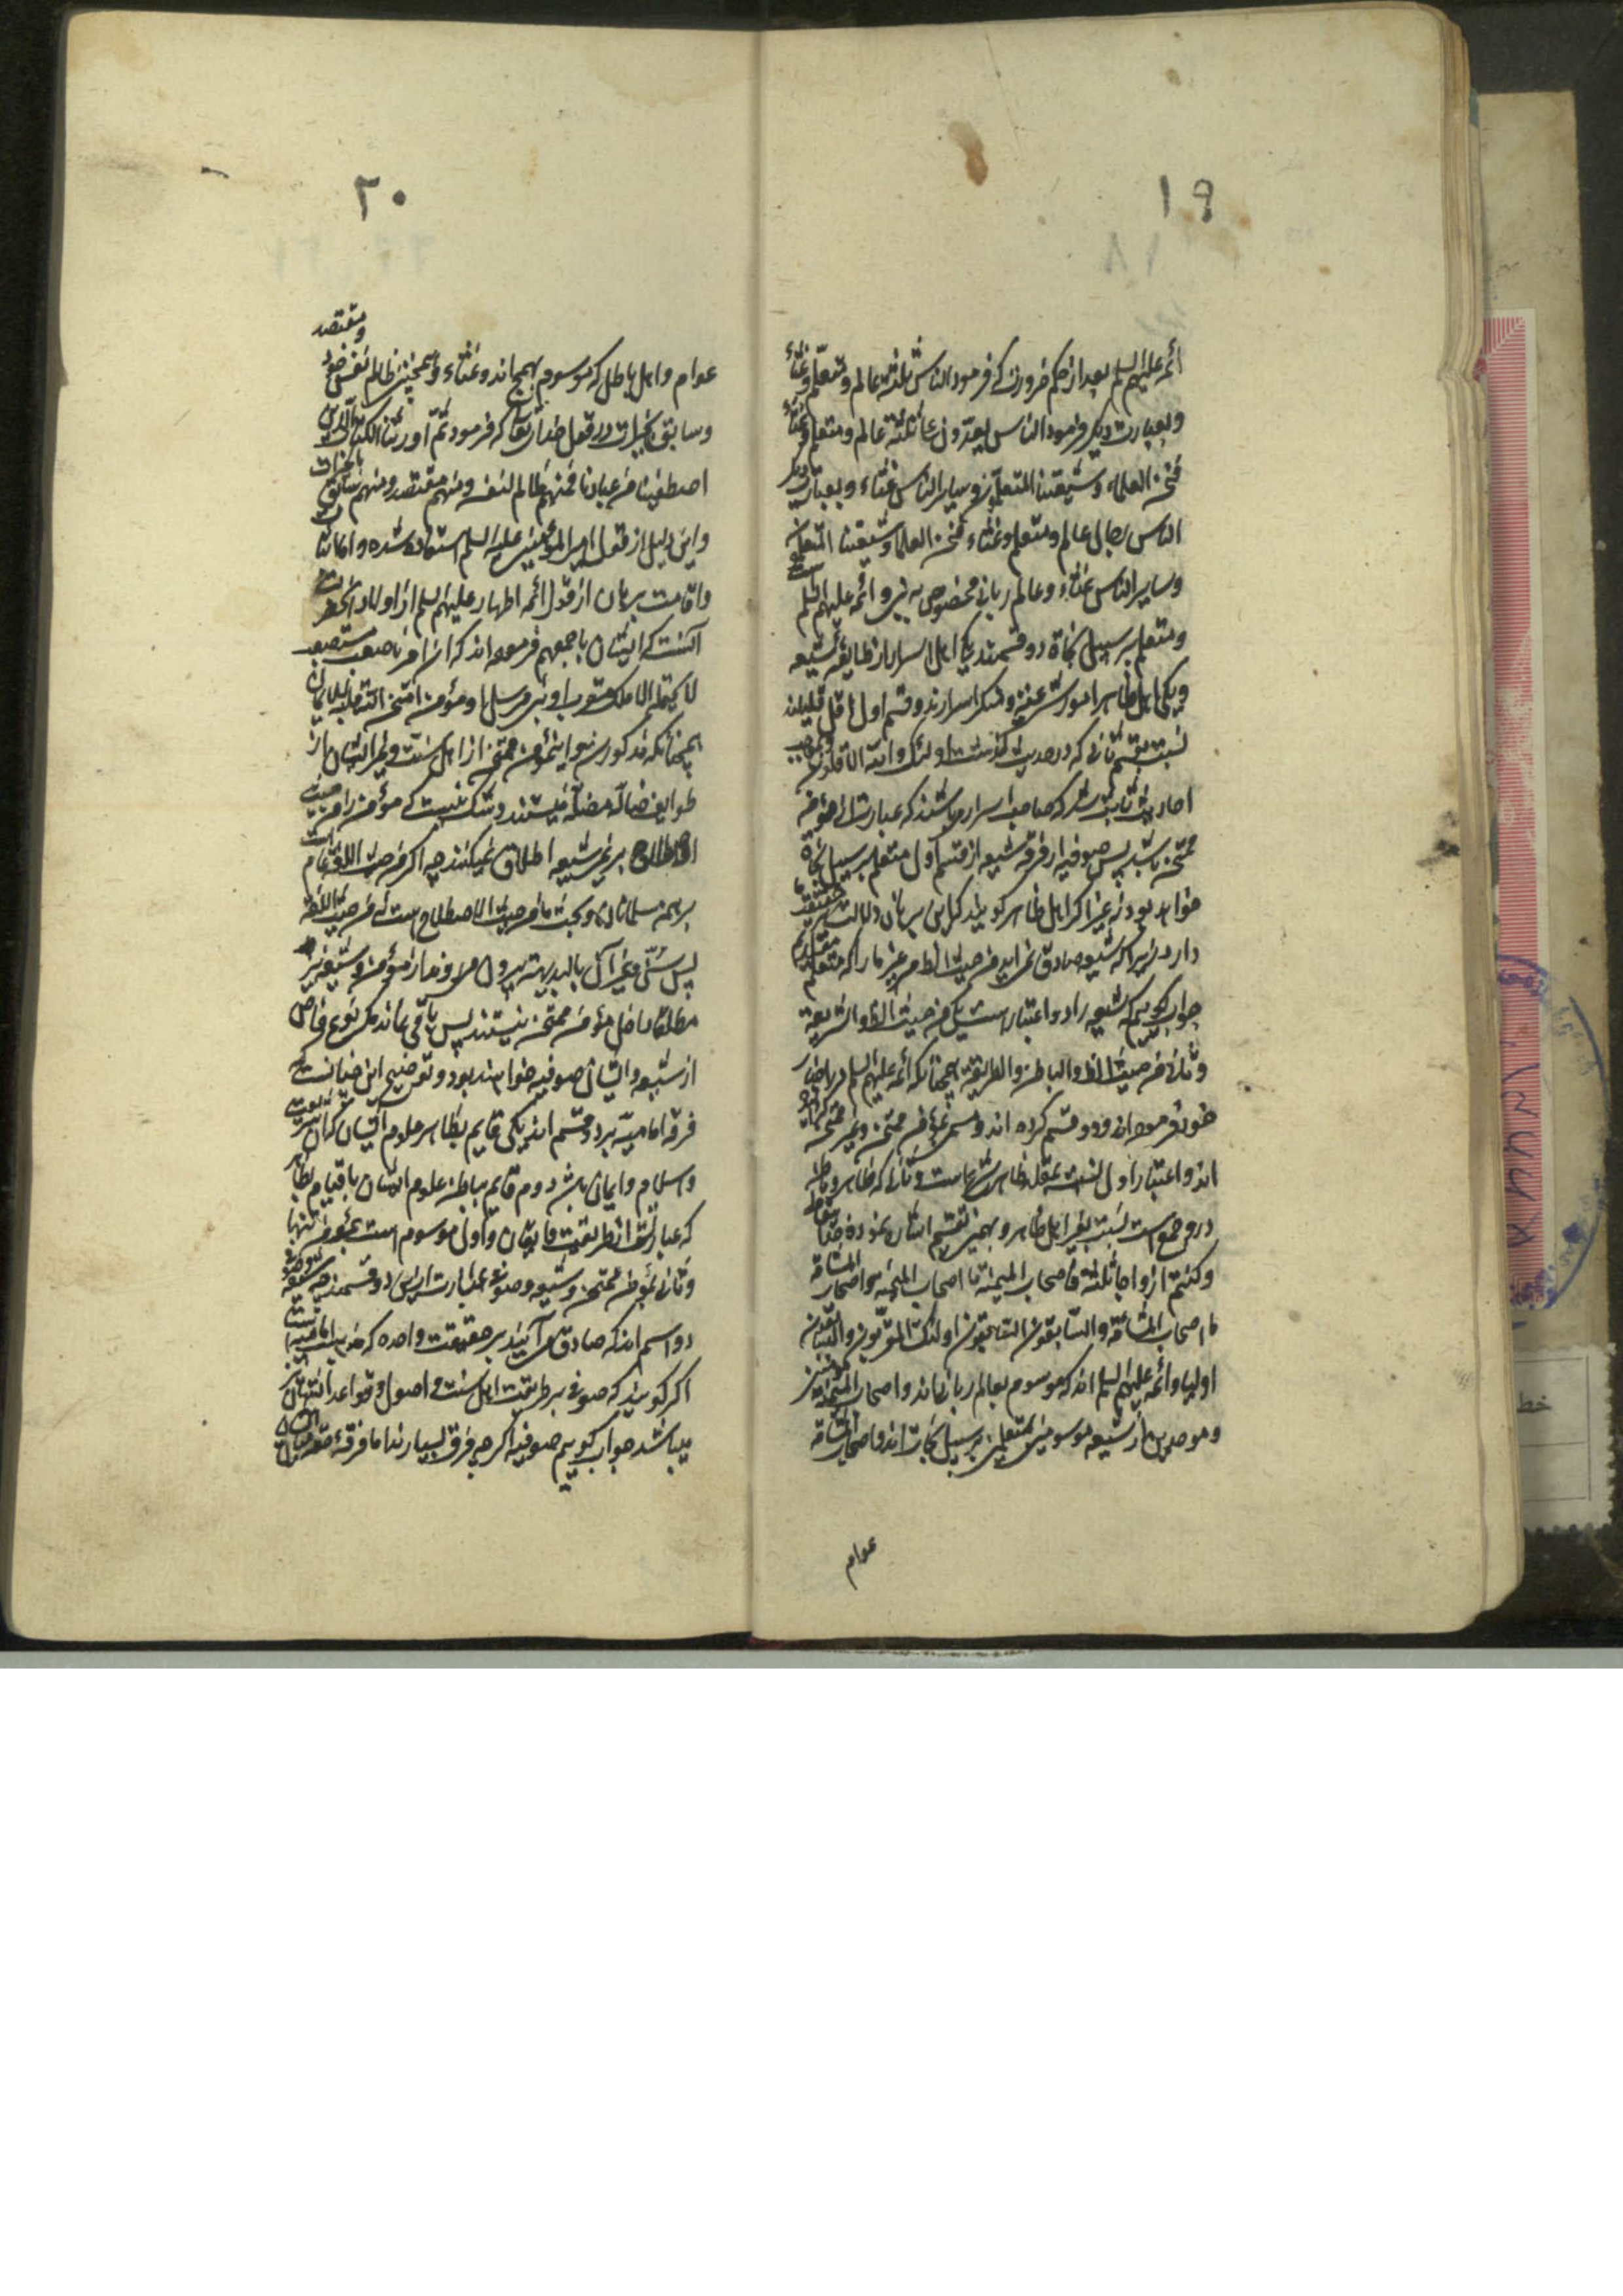 ١٩
ائمه علیهم السلم بعد از حکم ضرورت که فرمود الناس ثلثة عالم و متعلم و غثاء
و بعبارت دیگر فرمود الناس یغدون علی ثلثة عالم و متعلم و غثاء
فنحن العلماء و شیعتنا المتعلمون و سایر الناس غثاء و بعبارت دیگر
الناس رجال عالم و متعلم و غثاء فنحن العلما و شیعتنا المتعلمون
و سایر الناس غثاء و عالم ربانی مخصوص به نبی و ائمه علیهم السلم است
و متعلم بر سبیل نجاة دو قسمند یکی اهل اسرار از طایفه شیعه
و یکی اهل ظاهر امور شرعیه و منکر اسرارند و قسم اول اقل قلیلند
نسبت بقسم ثانی که در حدیث گذشت اولئک والله الاقلون و بموجب
احادیث ثابت شد که صاحب اسرار میباشند که عبارت از مؤمن
ممتحن باشد پس صوفیه از فرقه شیعه از قسم اول متعلم بر سبیل نجاة
خواهد بود نه غیر اگر اهل ظاهر گویند که این برهان دلالت بر حقیقت ما
دارد زیرا که شیعه صادق نمی آید من حیث الظاهر غیر ما را که متعلم
جواب گوییم که شیعه را دو اعتبار است یکی من حیث الظاهر و الشریعة
و ثانی من حیث الظاهر و الباطن و الطریقة همچنانکه ائمه علیهم السلم در احادیث
خود فرموده اند و دو قسم کرده اند و مسمی بمؤمن ممتحن و غیر ممتحن کرده
اند و اعتبار اول نسبت بمقلد ظاهر شرعیاست و ثانی که ظاهر و باطن
درو جمع است نسبت بغیر اهل ظاهر و بهمین تقسیم اشاره نموده حقتعالی
و کنتم ازواجا ثلثة فاصحاب المیمنة ما اصحاب المیمنة و اصحاب المشأمة
ما اصحاب المشأمة و السابقون السابقون اولئک المقربون و السابقون
اولیا و ائمه علیهم السلم اند که موسوم بعالم ربانی‌اند و اصحاب المیمنة مؤمنین
و موحدین از شیعه موسومین بمتعلمین بر سبیل نجات اند و اصحاب المشأمة
عوام
٢٠
عوام و اهل باطل که موسوم بهمج اند و غثاء و همچنین ظالم بنفس خود و مقتصد
و سابق بخیرات در قول خدای تعالی که فرمود ثم اورثنا الکتاب الذین
اصطفینا من عبادنا فمنهم ظالم لنفسه و منهم مقتصد و منهم سابق بالخیرات
و این دلیل از قول امیر المؤمنین علیه السلم استفاده شده و اما اثبات
و اقامت برهان از قول ائمه اطهار علیهم السلم از اولاد آنحضرت
آنست که ایشان باجمعهم فرموده اند که ان امرنا صعب مستصعب
لا یحتمله الا ملک مقرب او نبی مرسل او مؤمن امتحن الله قلبه للایمان
همچنانکه مذکور شد و این مؤمن ممتحن از اهل سنت و غیر ایشان از
طوایف ضاله مضله نیستند و شک نیست که مؤمن را من حیث
الاصطلاح بر غیر شیعه اطلاق نمیکنند چه اگر من حیث اللغة عام است
بر همه مسلمانان و بحث ما من حیث الاصطلاح است نه من حیث اللغة
پس سنی و غیر آن بالبدیهه بیرون می‌روند از مؤمن و شیعه نیز
مطلقا داخل مؤمن ممتحن نیستند پس باقی نماند مگر نوع خاص
از شیعه و ایشان صوفیه خواهند بود و توضیح این چنانست که
فرقه امامیه بر دو قسم اند یکی قایم بظاهر علوم ایشان که آن شریعت
و اسلام و ایمان باشد دوم قایم بباطن علوم ایشان با قیام بظاهر
که عبارتست از طریقت و ایقان و اول موسوم است بمؤمن تنها
و ثانی بمؤمن ممتحن و شیعه و صوفی عبارت از این دو قسمند چه شیعه و صوفی
دو اسم اند که صادق می‌آیند بر حقیقت واحده که مذهب امامیه است
اگر گویند که صوفی بر طریقت اهل سنت و اصول و قواعد ایشان نیز
میباشد جواب گوییم صوفیه اگر چه فرق بسیارند اما فرقه حقه ایشان